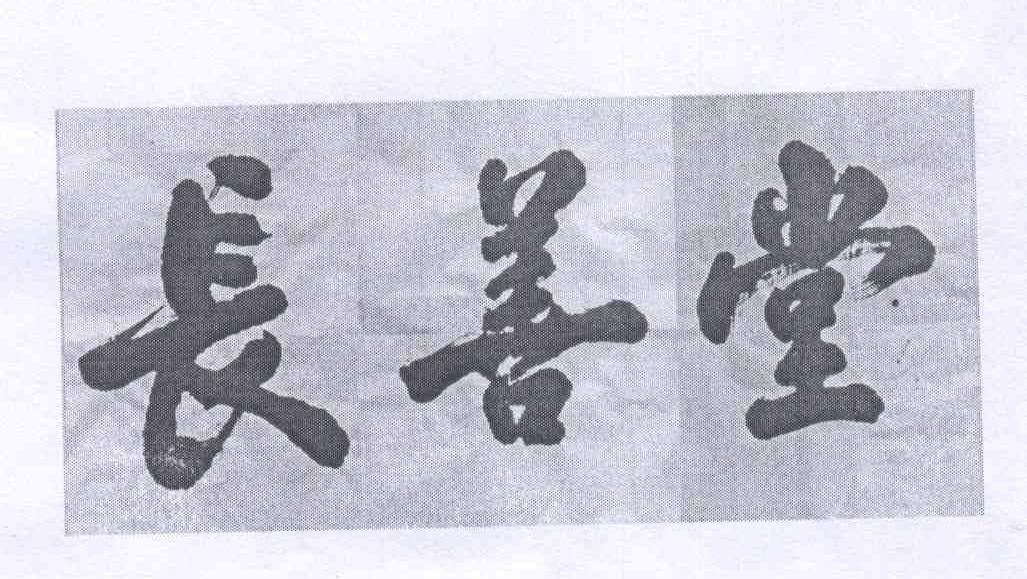 長善堂